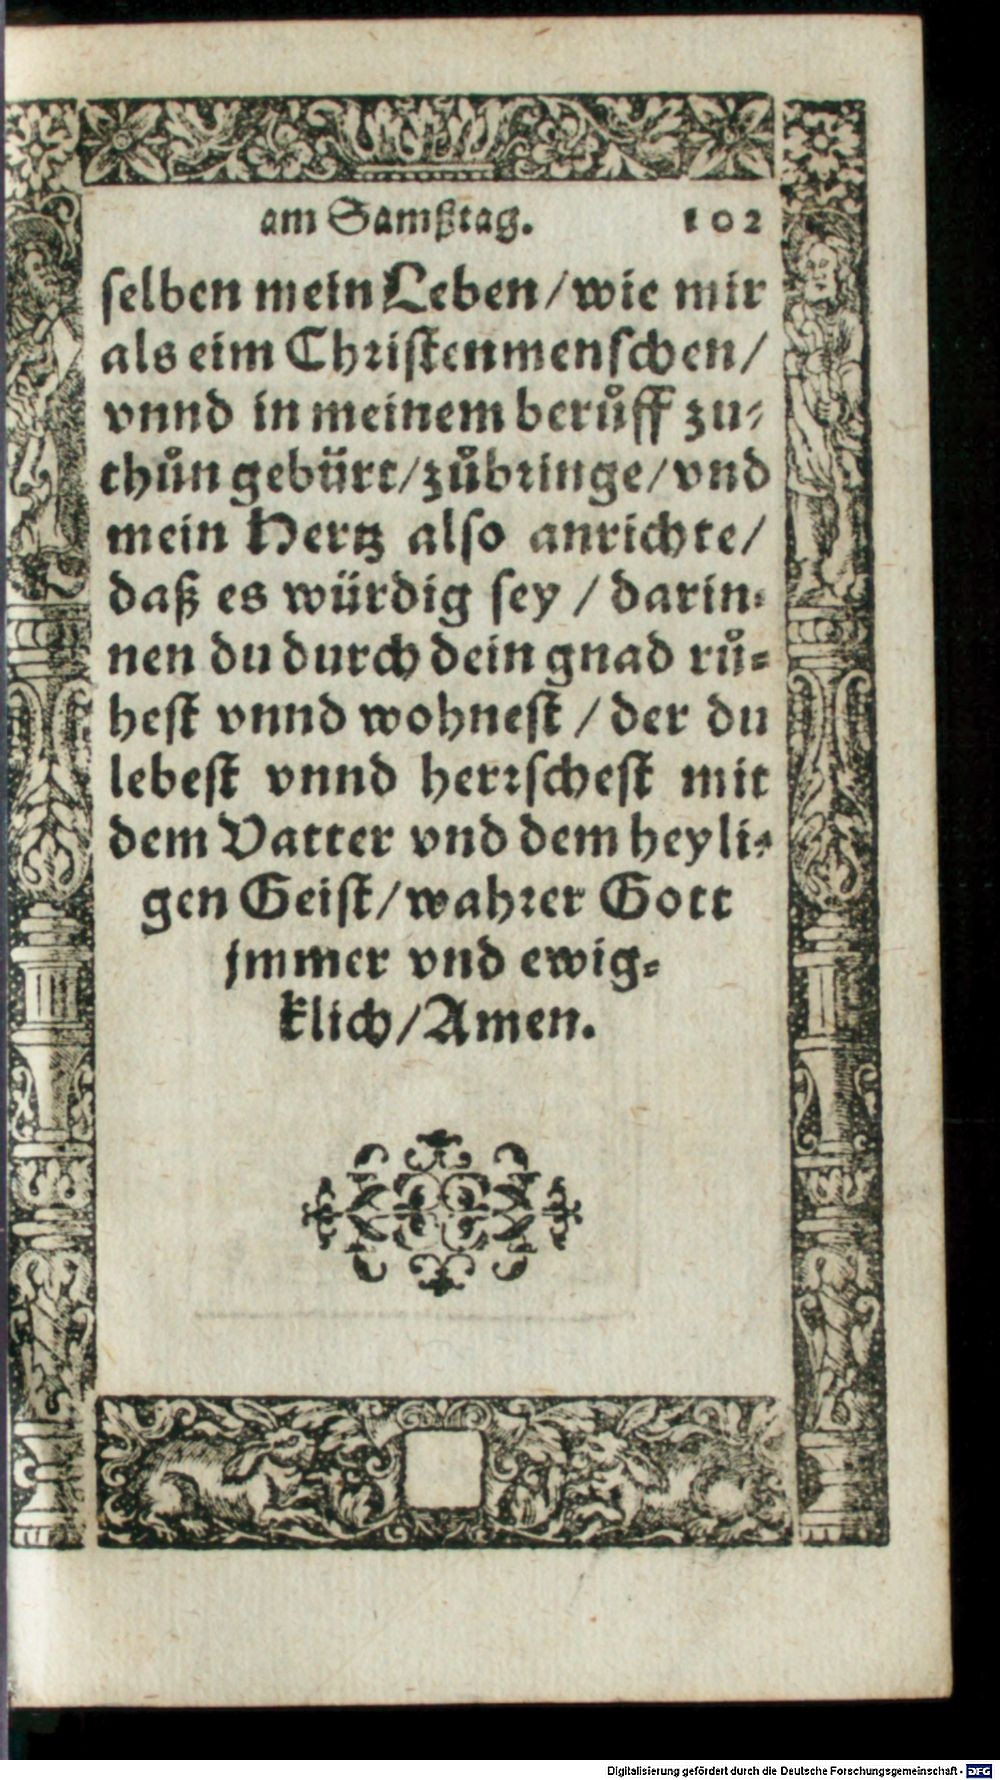 am Samßtag. 102
selben mein Leben/wie mir
als eim Christenmenschen/
vnnd in meinem berůff zu-
thůn gebürt/zůbringe/vnd
mein Hertz also anrichte/
daß es würdig sey / darin-
nen du durch dein gnad rů-
hest vnnd wohnest / der du
lebest vnnd herrschest mit
dem Vatter vnd dem heyli-
gen Geist/wahrer Gott
jmmer vnd ewig-
klich/Amen.
Digitalisierung gefördert durch die Deutsche Forschungsgemeinschaft - DFG